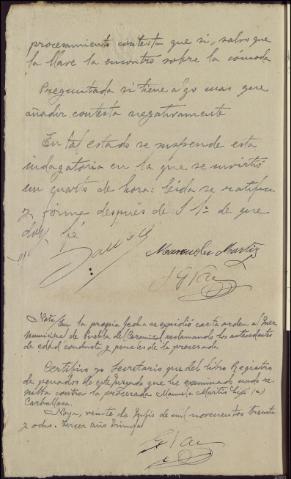 procesamiento contesta que si, salvo que
la llave la encontro sobre la cómoda
Preguntada si tiene algo mas que
añadir contesta negativamente
En tal estado se suspende esta
indagatoria en la que se invirtió
un cuarto de hora: leida se ratifica
y firma después de S Sª de que
doy fé
Manuela Martin
Nota. En la propia fecha se expidió carta orden al Juez
Municipal de Puebla de reclamando los antecedentes
de edad conducta y penales de la procesada.
Certifico yo Secretario que del libro Registro
de penados de este Juzgado que he examinado nada re-
sulta contra la procesada Manuela Martin
Carballosa.
veinte de Julio de mil novecientos treinta
y ocho. Tercer año Triunfal